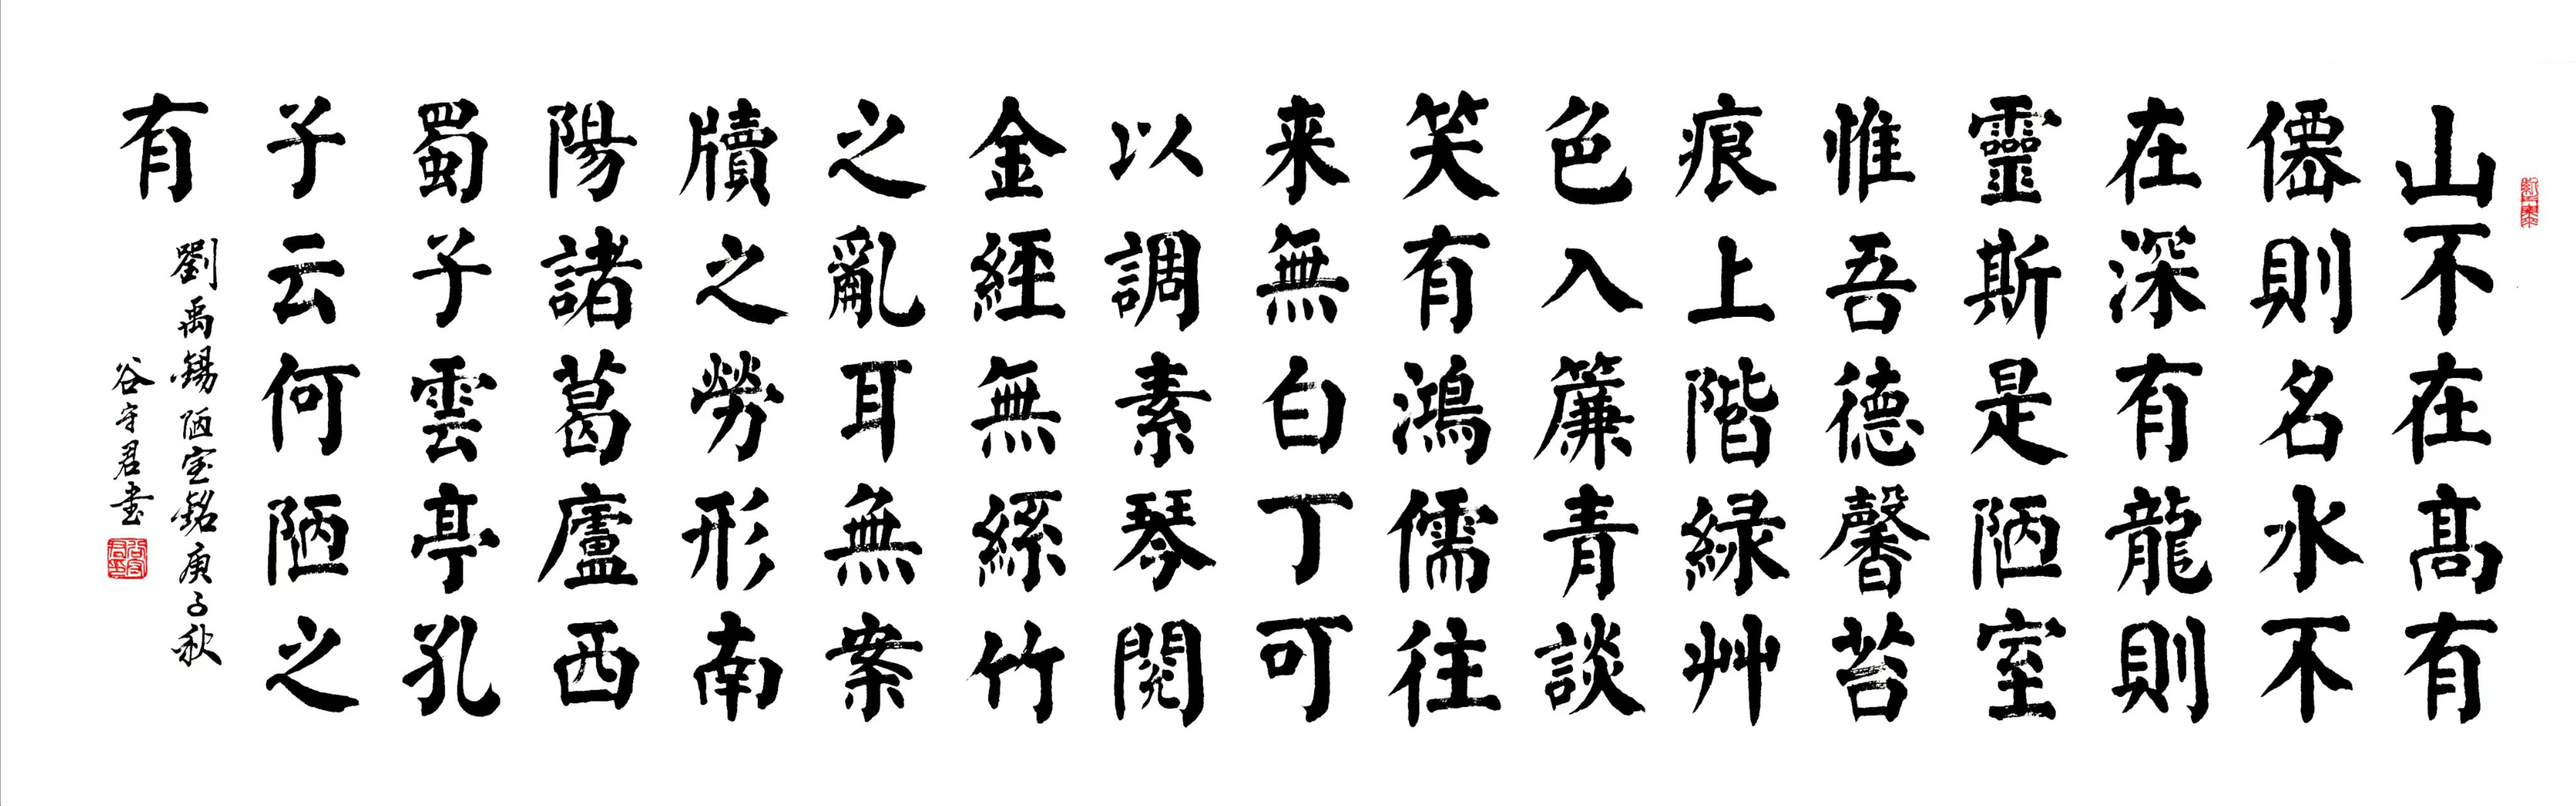 山不在髙有
僊則名水不
在深有龍則
靈斯是陋室
惟吾德馨苔
痕上階緑艸
色入簾青談
笑有鴻儒往
来無白丁可
以調素琴閲
金經無絲竹
之亂耳無案
牘之勞形南
陽諸葛廬西
蜀子雲亭孔
子云何陋之
有
劉禹錫陋室銘庚子秋
谷守君書